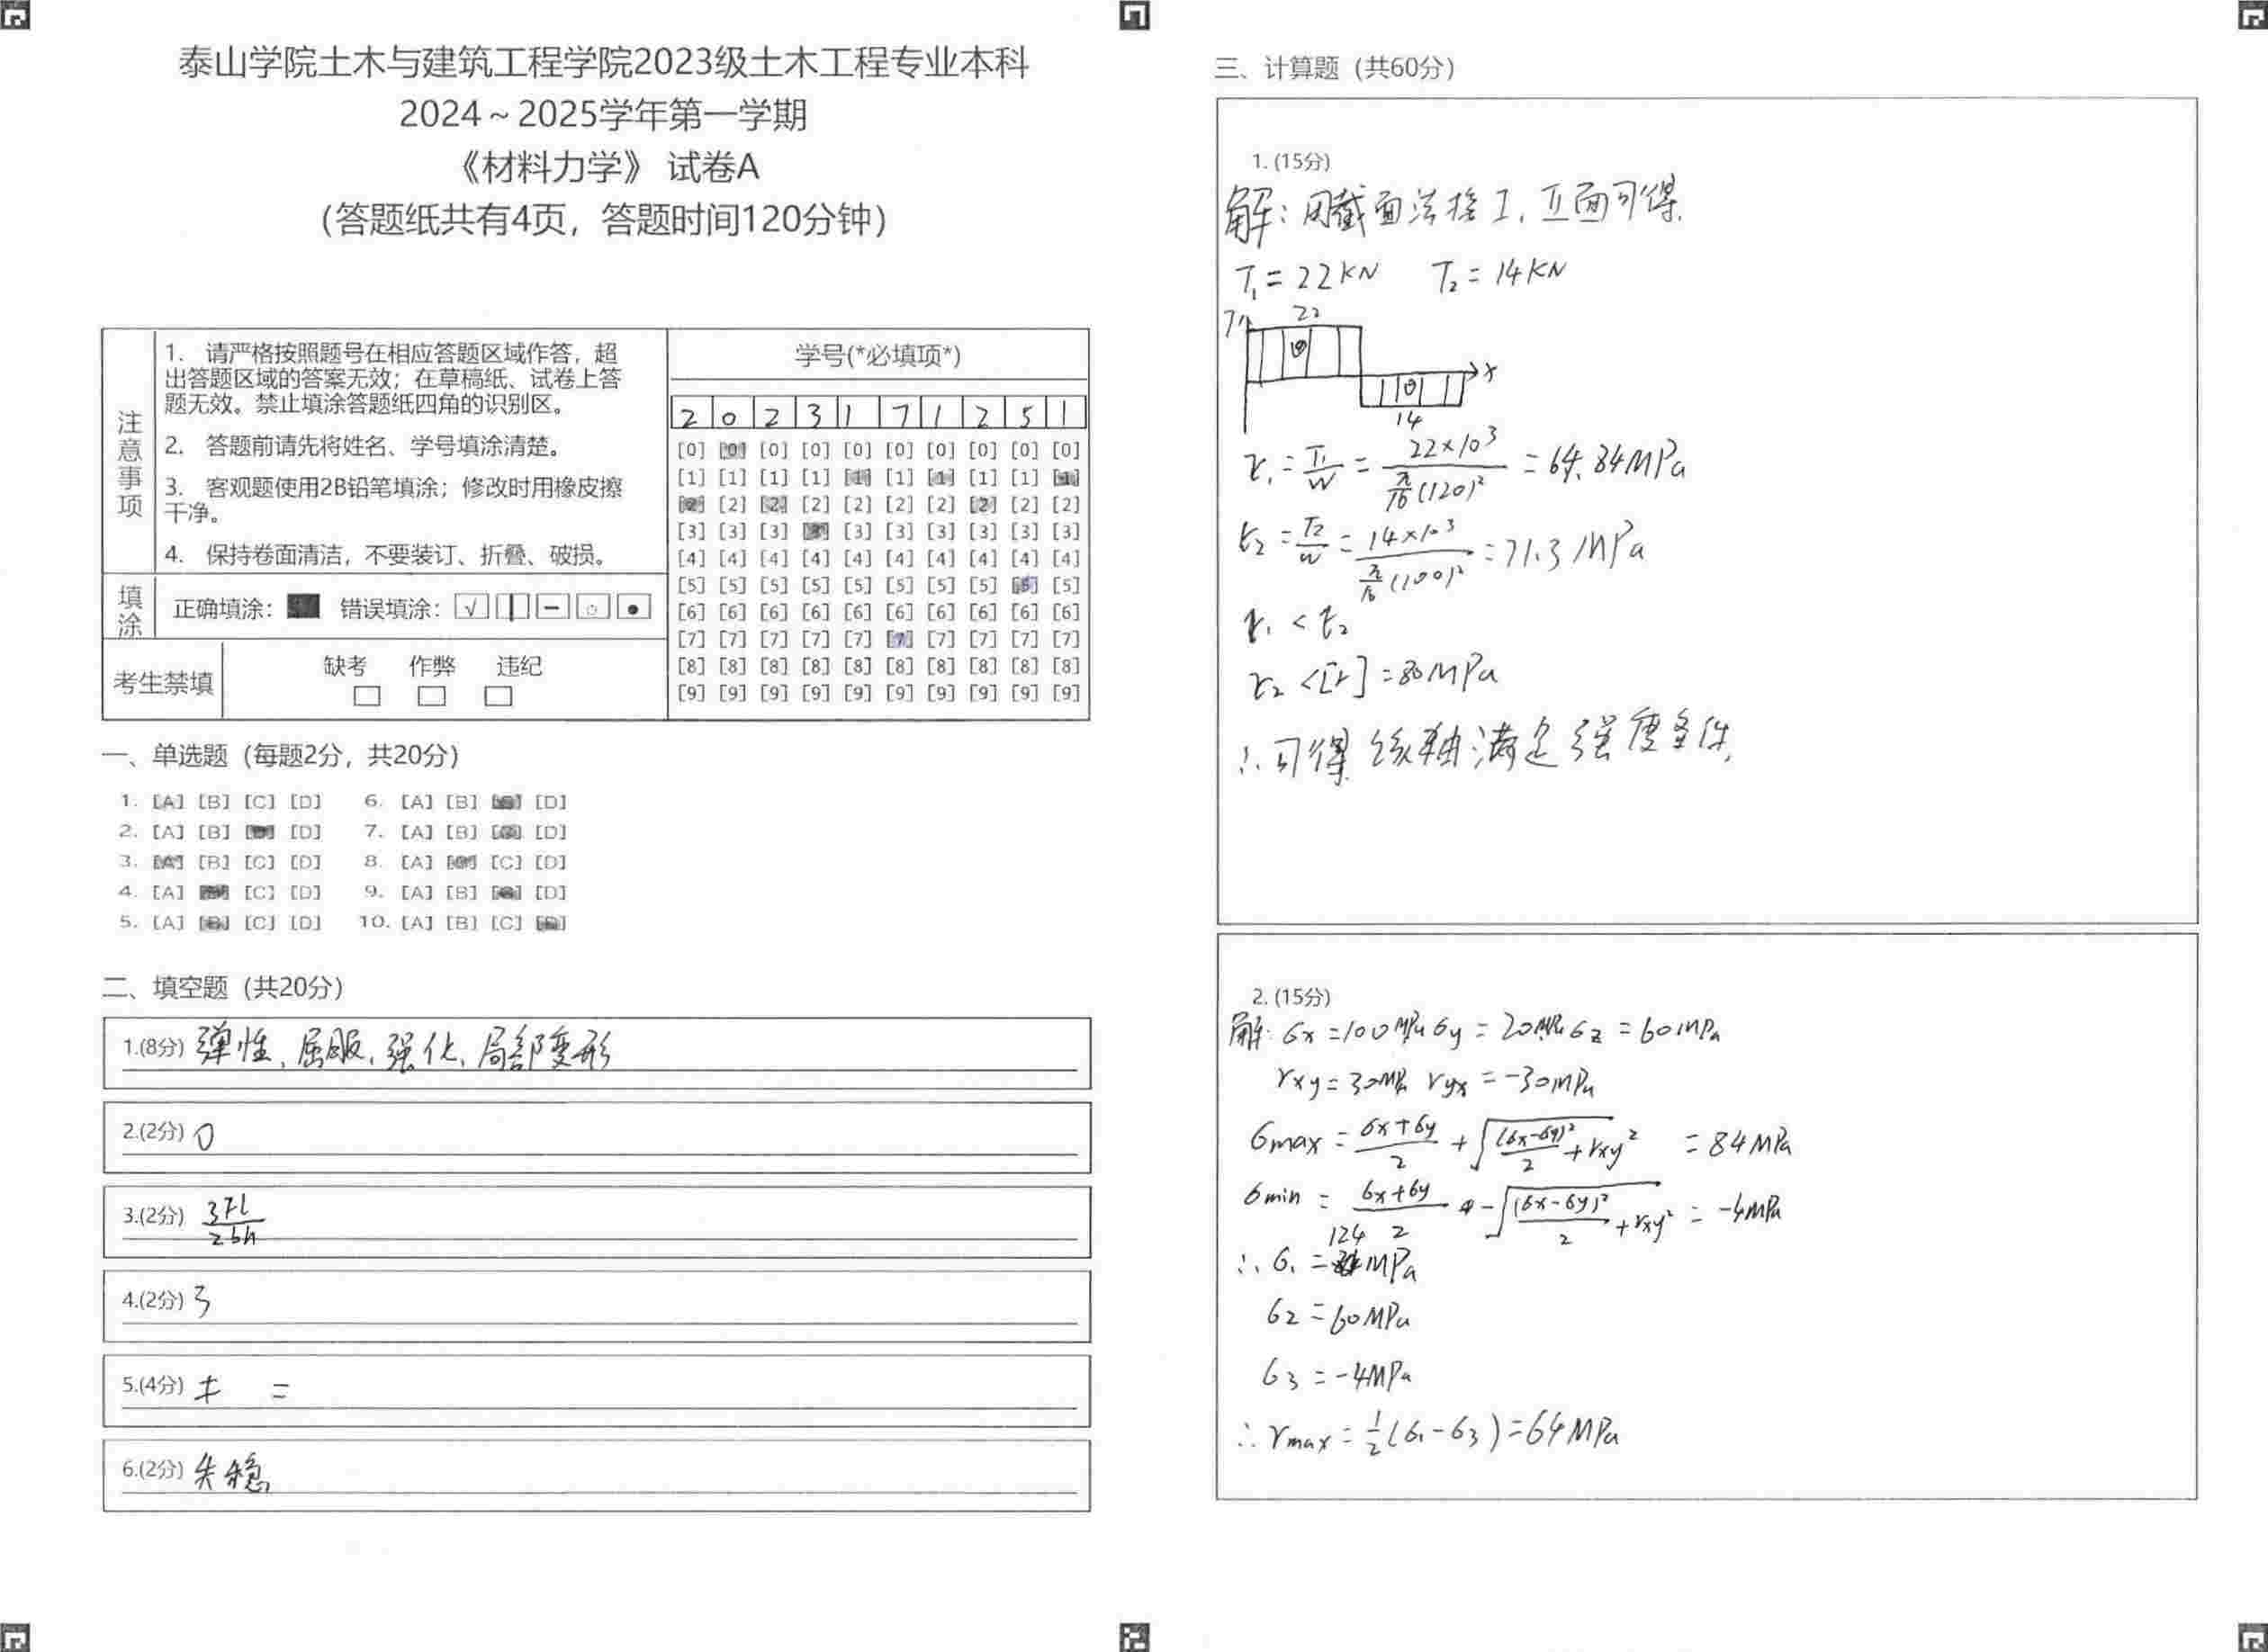 泰山学院土木与建筑工程学院2023级土木工程专业本科
2024～2025学年第一学期
《材料力学》 试卷A
（答题纸共有4页，答题时间120分钟）
注意事项
1. 请严格按照题号在相应答题区域作答，超
出答题区域的答案无效；在草稿纸、试卷上答
题无效。禁止填涂答题纸四角的识别区。
2. 答题前请先将姓名、学号填涂清楚。
3. 客观题使用2B铅笔填涂；修改时用橡皮擦
干净。
4. 保持卷面清洁，不要装订、折叠、破损。
填涂
正确填涂： 错误填涂： √
考生禁填
缺考 作弊 违纪
学号(*必填项*)
2 0 2 3 1 7 1 2 5 1
[0] [0] [0] [0] [0] [0] [0] [0] [0] [0]
[1] [1] [1] [1] [1] [1] [1] [1] [1] [1]
[2] [2] [2] [2] [2] [2] [2] [2] [2] [2]
[3] [3] [3] [3] [3] [3] [3] [3] [3] [3]
[4] [4] [4] [4] [4] [4] [4] [4] [4] [4]
[5] [5] [5] [5] [5] [5] [5] [5] [5] [5]
[6] [6] [6] [6] [6] [6] [6] [6] [6] [6]
[7] [7] [7] [7] [7] [7] [7] [7] [7] [7]
[8] [8] [8] [8] [8] [8] [8] [8] [8] [8]
[9] [9] [9] [9] [9] [9] [9] [9] [9] [9]
一、单选题（每题2分，共20分）
1. [A] [B] [C] [D] 6. [A] [B] [C] [D]
2. [A] [B] [C] [D] 7. [A] [B] [C] [D]
3. [A] [B] [C] [D] 8. [A] [B] [C] [D]
4. [A] [B] [C] [D] 9. [A] [B] [C] [D]
5. [A] [B] [C] [D] 10. [A] [B] [C] [D]
二、填空题（共20分）
1.(8分) 弹性、屈服、强化、局部变形
2.(2分) 0
3.(2分) 3Fl/2bh
4.(2分) 3
5.(4分) 士 =
6.(2分) 失稳
三、计算题（共60分）
1. (15分)
解：用截面法按I，II面可得
T₁ = 22KN T₂ = 14KN
T 22
x
14
τ₁ = T₁/W = 22×10³/(π/16 (120)²) = 64.84MPa
τ₂ = T₂/W = 14×10³/(π/16 (100)²) = 71.3MPa
τ₁ < τ₂
τ₂ < [τ] = 80MPa
∴可得该轴满足强度条件
2. (15分)
解: σx = 100MPa σy = 20MPa σz = 60MPa
τxy = 30MPa τyx = -30MPa
σmax = (σx+σy)/2 + √((σx-σy)²/2 + τxy²) = 84MPa
σmin = (σx+σy)/2 - √((σx-σy)²/2 + τxy²) = -4MPa
∴ σ₁ = 124MPa
σ₂ = 60MPa
σ₃ = -4MPa
∴ τmax = 1/2(σ₁-σ₃) = 64MPa